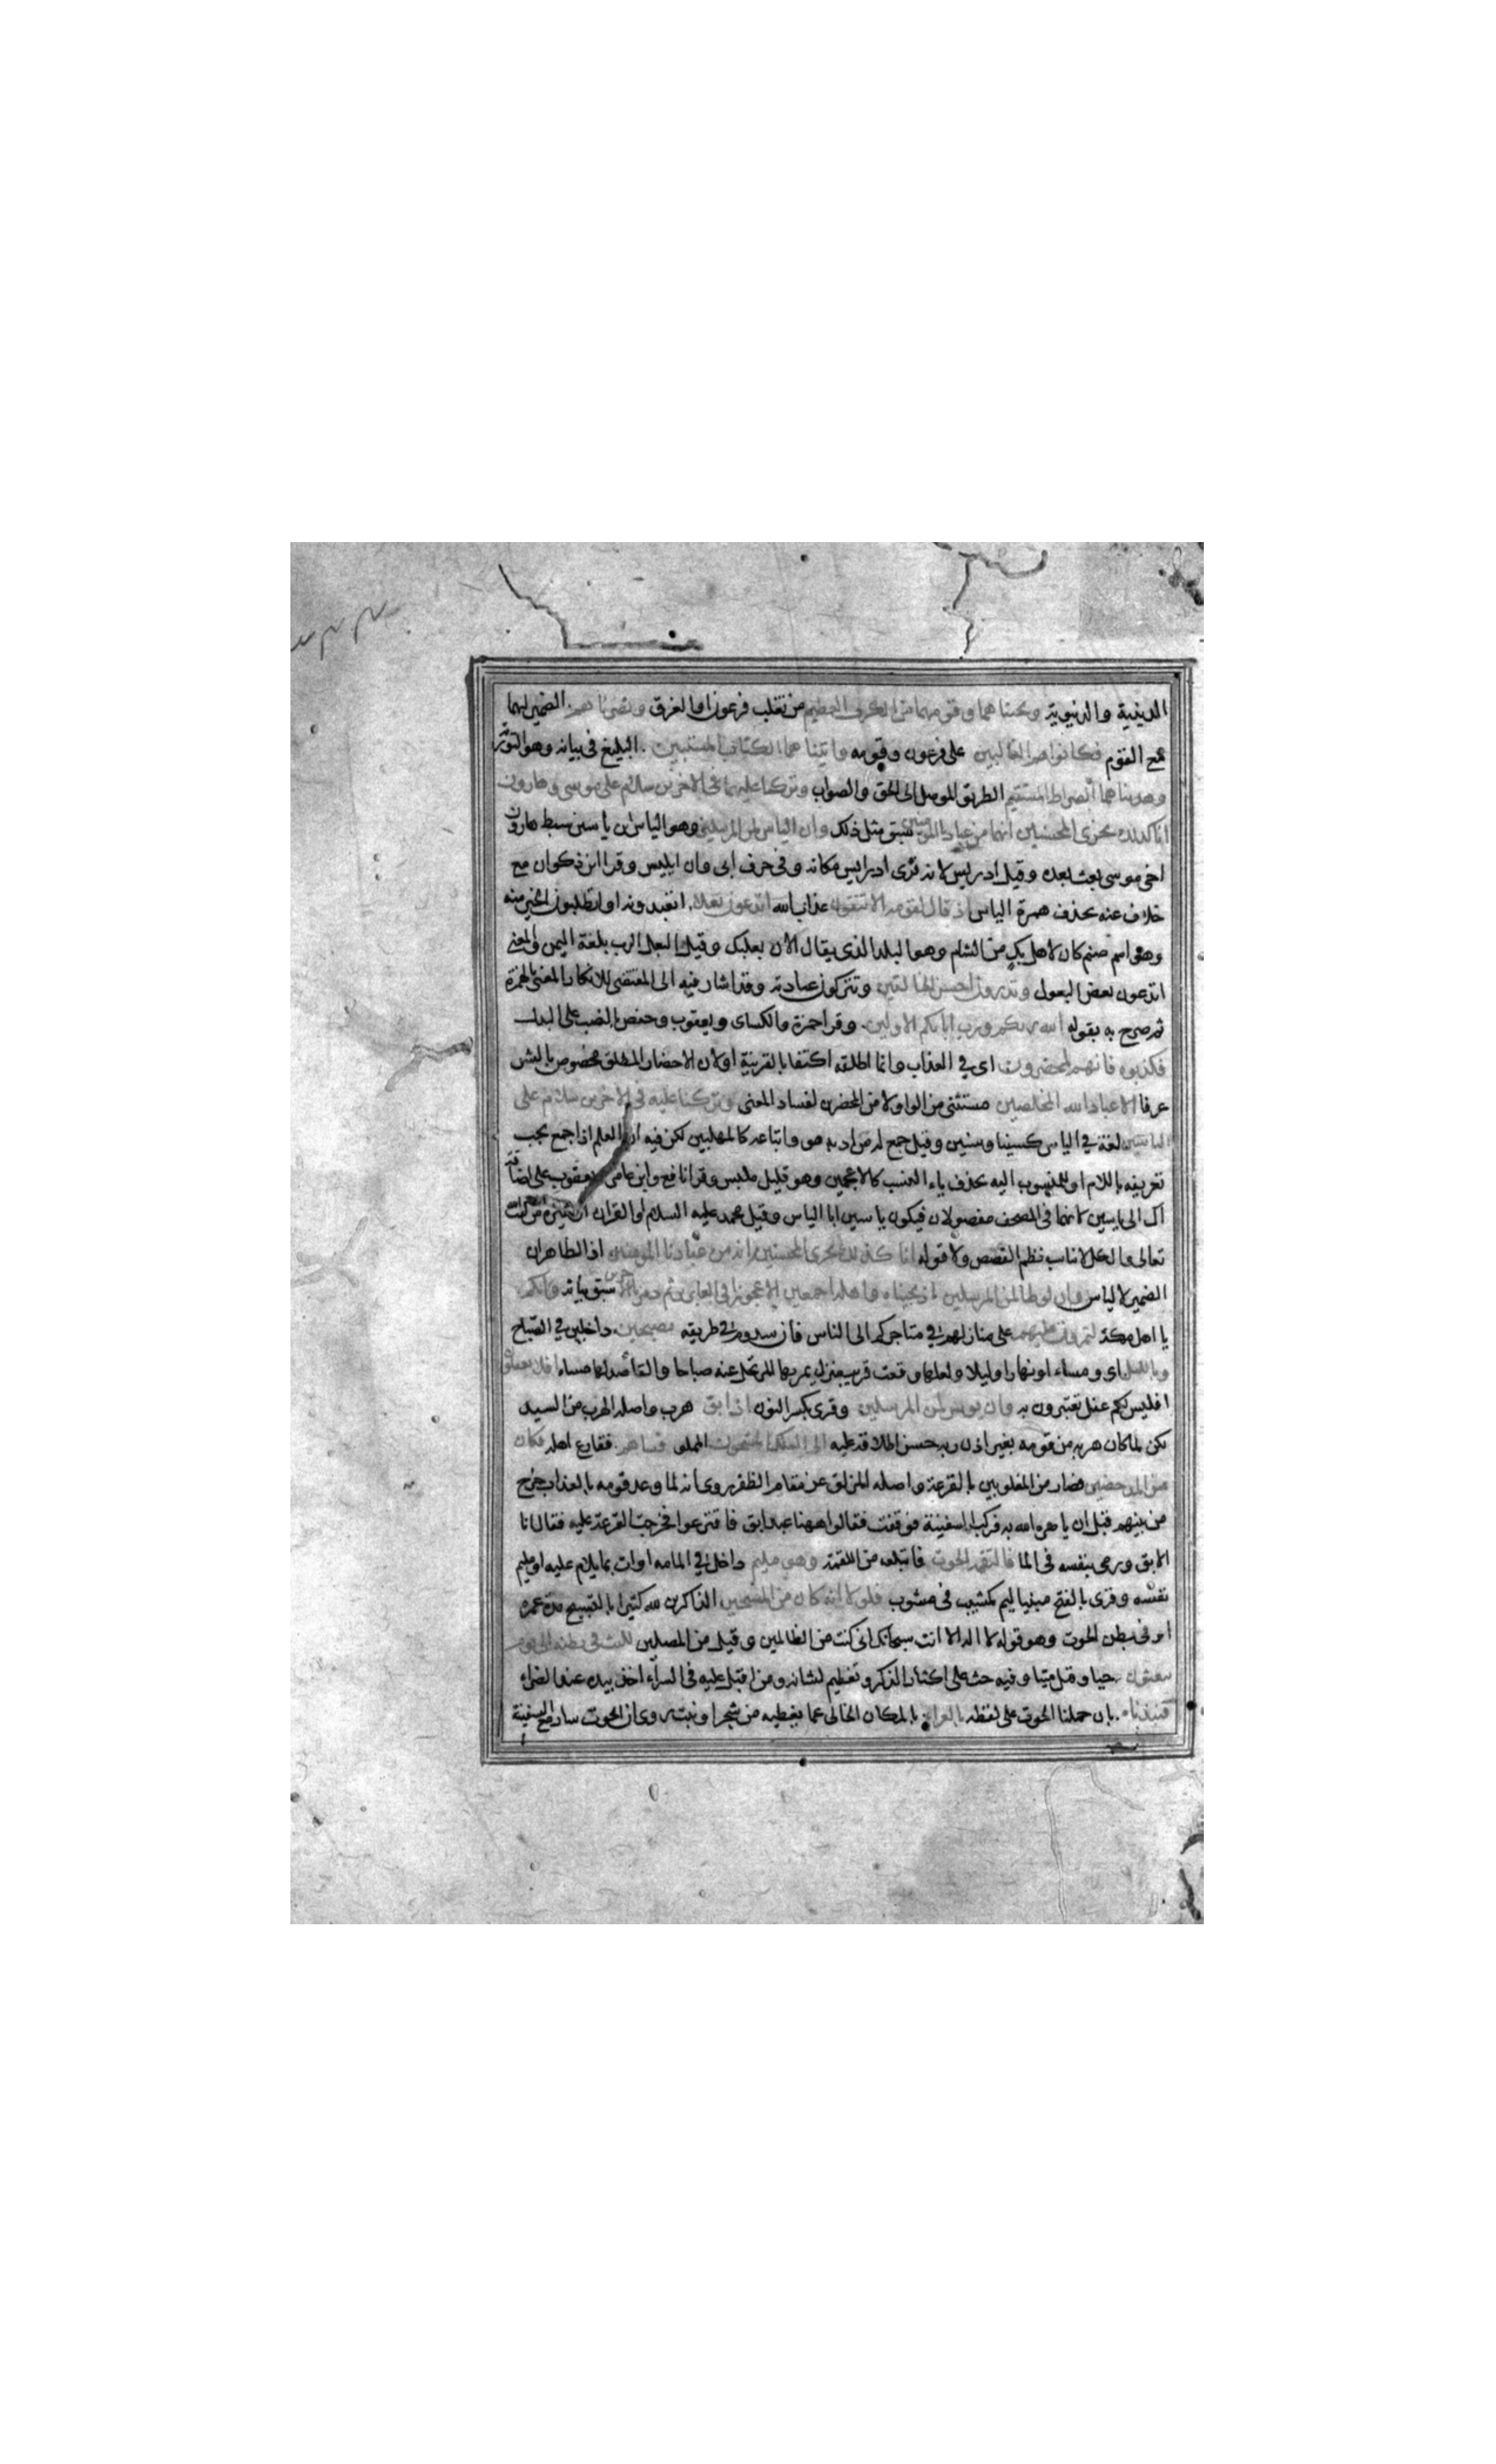 الدينية والدنيوية ونجيناهما وقومهما من الكرب العظيم من تغلب فرعون او الغرق ونصرناهم الضمير لهما
مع القوم فكانوا هم الغالبين على فرعون وقومه واتيناهما الكتاب المستبين البليغ في بيانه وهو التورية
وهديناهما الصراط المستقيم الطريق الموصل الى الحق والصواب وتركنا عليهما في الاخرين سلام على موسى وهارون
انا كذلك نجزى المحسنين انهما من عبادنا المؤمنين سبق مثل ذلك وان الياس لمن المرسلين وهو الياس بن ياسين سبط هارون
اخى موسى بعث بعده وقيل ادريس لانه قرى ادريس مكانه وفي حرف ابى وان ايليس وقرا ابن ذكوان مع
خلاف عنه بحذف همزة الياس اذ قال لقومه الا تتقون عذاب الله اتدعون بعلا اتعبدونه او اتطلبون الخير منه
وهو اسم صنم كان لاهل بك من الشام وهو البلد الذى يقال الان بعلبك وقيل البعل الرب بلغة اليمن والمعنى
اتدعون بعض البعول وتذرون احسن الخالقين وتتركون عبادته وقد اشار فيه الى المقتضى للانكار المعنى بالهمزة
ثم صرح به بقوله الله ربكم ورب ابائكم الاولين وقرا حمزة والكساى ويعقوب وحفص بالنصب على البدل
فكذبوه فانهم لمحضرون اى في العذاب وانما اطلقه اكتفا بالقرينة او لان الاحضار المطلق مخصوص بالشر
عرفا الا عباد الله المخلصين مستثنى من الواو لا من المحضرين لفساد المعنى وتركنا عليه في الاخرين سلام على
الياسين لغة في الياس كسينا وسنين وقيل جمع له مراد به هو واتباعه كالمهلبين لكن فيه ان العلم اذا جمع يجب
تعريفه باللام او للمنسوب اليه بحذف ياء النسب كالاعجمين وهو قليل ملبس وقرا نافع وابن عامر ويعقوب على اضافة
ال الى ياسين لانهما في المصحف مفصولان فيكون ياسين ابا الياس وقيل محمد عليه السلام او القران او غيره من كتب الله
تعالى والكل لا يناسب نظم القصص ولا قوله انا كذلك نجزى المحسنين انه من عبادنا المؤمنين اذ الظاهر ان
الضمير لالياس وان لوطا لمن المرسلين اذ نجيناه واهله اجمعين الا عجوزا في الغابرين ثم دمرنا الاخرين سبق بيانه وانكم
يا اهل مكة لتمرون عليهم على منازلهم في متاجركم الى الشام فان سدوم في طريقه مصبحين داخلين في الصباح
وبالليل اى ومساء او نهارا وليلا ولعلها وقعت قريب منزل يمر بها المرتحل عنه صباحا والقاصد لها مساء افلا تعقلون
افليس لكم عقل تعتبرون به وان يونس لمن المرسلين وقرى بكسر النون اذ ابق هرب واصله الهرب من السيد
لكن لما كان هربه من قومه بغير اذن ربه حسن اطلاقه عليه الى الفلك المشحون المملو فساهم فقارع اهله فكان
من المدحضين فصار من المغلوبين بالقرعة واصله المزلق عن مقام الظفر روى انه لما وعد قومه بالعذاب خرج
من بينهم قبل ان يامره الله به فركب السفينة فوقفت فقالوا ههنا عبد ابق فاقترعوا فخرجت القرعة عليه فقال انا
الابق ورمى بنفسه في الما فالتقمه الحوت فابتلعه من اللقمة وهو مليم داخل في الملامة او ات بما يلام عليه او مليم
نفسه وقرى بالفتح مبنيا من ليم كمشيب في مشوب فلولا انه كان من المسبحين الذاكرين لله كثيرا بالتسبيح مدة عمره
او في بطن الحوت وهو قوله لا اله الا انت سبحانك انى كنت من الظالمين وقيل من المصلين للبث في بطنه الى يوم
يبعثون حيا وقيل ميتا وفيه حث على اكثار الذكر وتعظيم لشانه ومن اقبل عليه في السراء اخذ بيده عند الضراء
فنبذناه بان حملنا الحوت على لفظه بالعراء بالمكان الخالى عما يغطيه من شجر او نبت روى ان الحوت سار مع السفينة